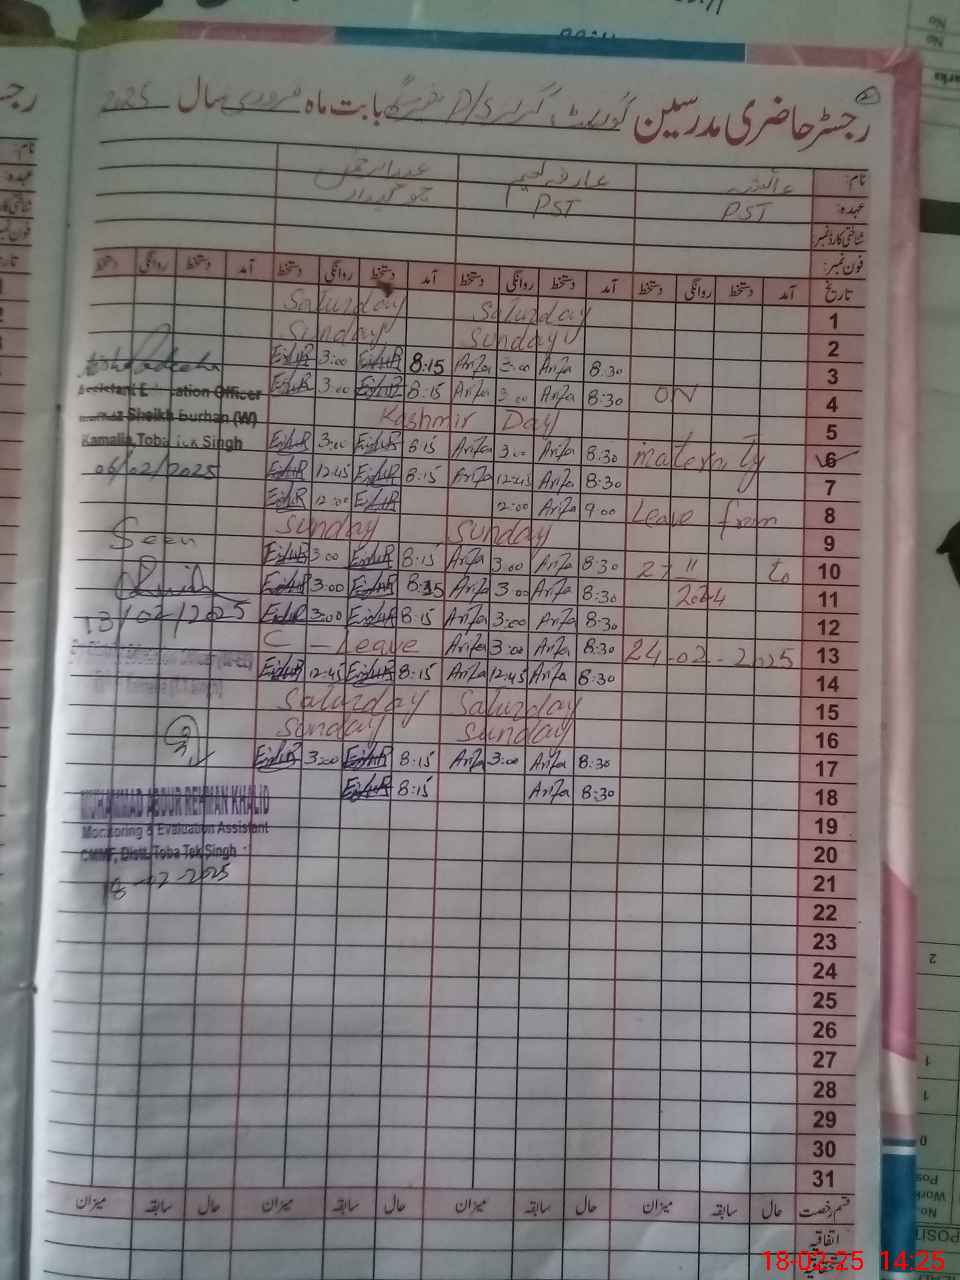 رجسٹر حاضری مدرسین گورنمنٹ گرلز P/S بابت ماہ فروری سال 2025
نام: عائشہ عارفہ نعیم
عہدہ: PST PST چوکیدار
شناختی کارڈ نمبر:
فون نمبر:
تاریخ آمد دستخط روانگی دستخط آمد دستخط روانگی دستخط آمد دستخط روانگی دستخط آمد دستخط روانگی دستخط
Saturday Saturday 1
Sunday Sunday 2
3:00 8:15 Arifa 3:00 Arifa 8:30 3
3:00 8:15 Arifa 3:00 Arifa 8:30 ON 4
Kashmir Day 5
3:00 8:15 Arifa 3:00 Arifa 8:30 maternity 6
12:45 8:15 Arifa 12:45 Arifa 8:30 7
12:00 12:00 Arifa 9:00 Leave from 8
Sunday Sunday 9
3:00 8:15 Arifa 3:00 Arifa 8:30 27 11 to 10
3:00 8:15 Arifa 3:00 Arifa 8:30 2024 11
3:00 8:15 Arifa 3:00 Arifa 8:30 12
C - Leave Arifa 3:00 Arifa 8:30 24-02-2025 13
12:45 8:15 Arifa 12:45 Arifa 8:30 14
Saturday Saturday 15
Sunday Sunday 16
3:00 8:15 Arifa 3:00 Arifa 8:30 17
8:15 Arifa 8:30 18
19
20
21
22
23
24
25
26
27
28
29
30
31
Assistant Education Officer
Markaz Sheikh Burhan (W)
Kamalia, Toba Tek Singh
06/02/2025
Seen
13/02/2025
MUHAMMAD ABDUR REHMAN KHALID
Monitoring & Evaluation Assistant
CMMF, Distt. Toba Tek Singh
18-02-2025
قسم رخصت حال سابقہ میزان حال سابقہ میزان حال سابقہ میزان
اتفاقیہ
18-02-25 14:25